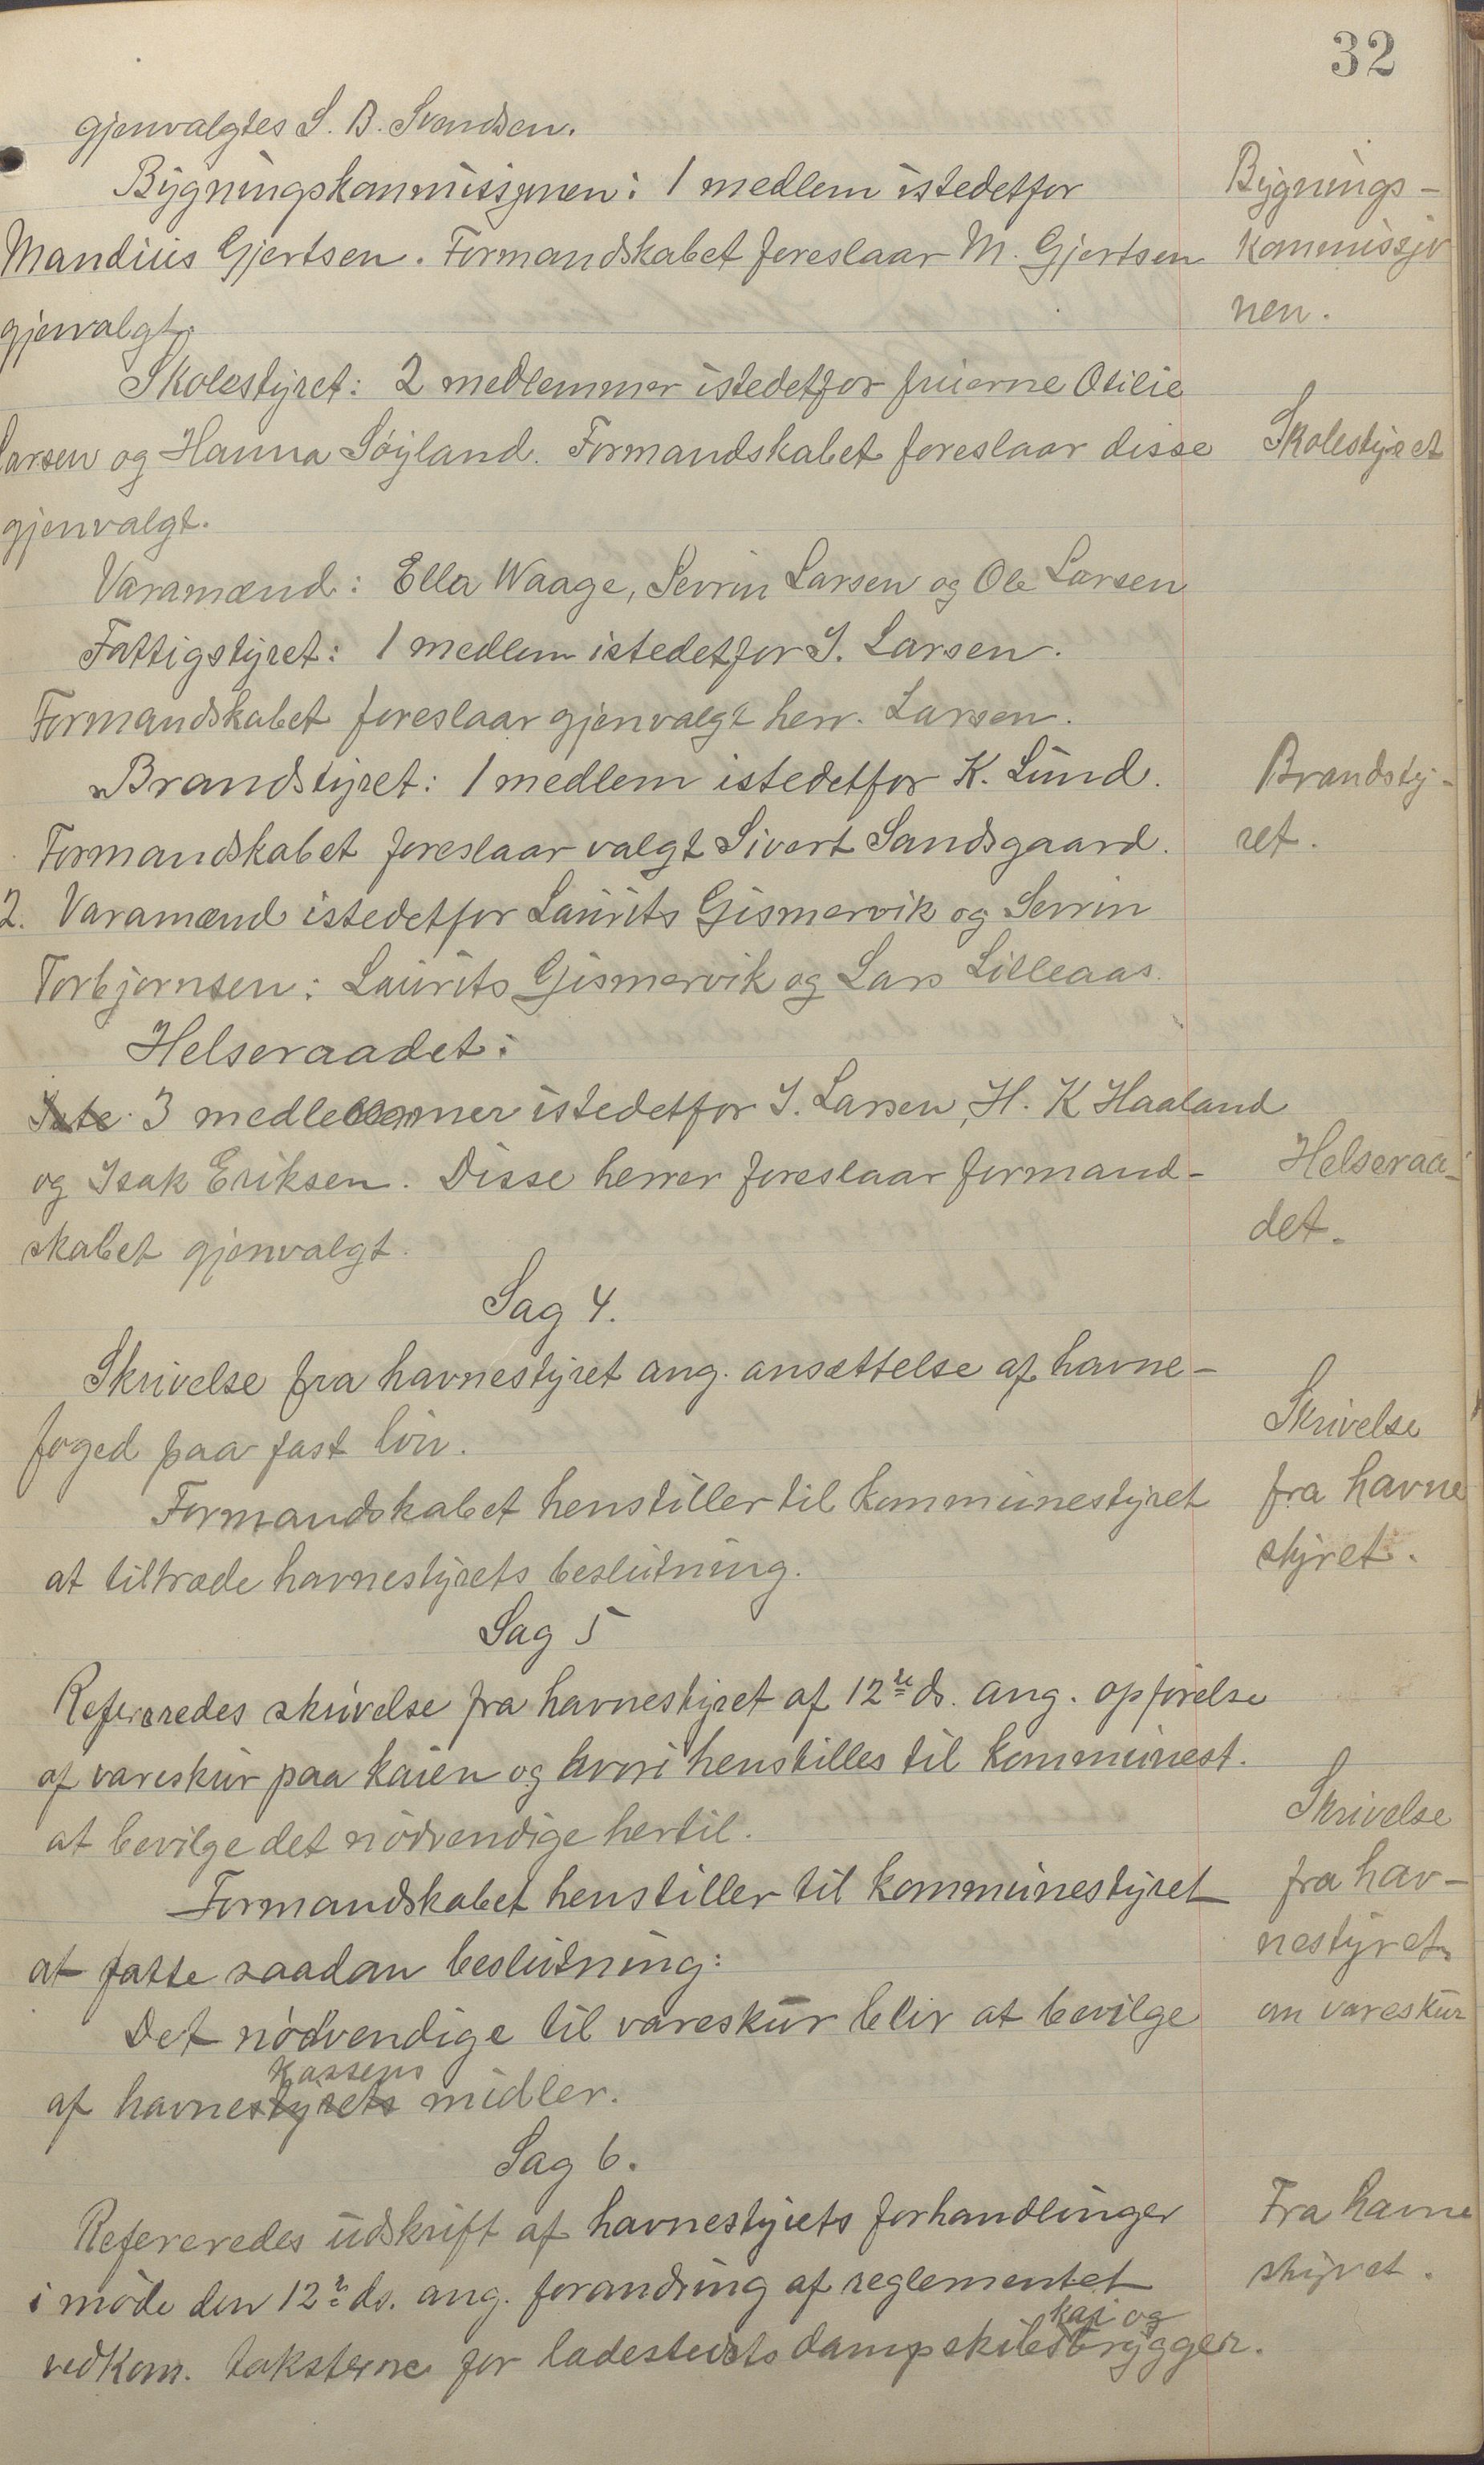 32
gjenvalgtes S. B. Svendsen.
Bygningskommissjonen: 1 medlem istedetfor
Mandius Gjertsen. Formandskabet foreslaar M. Gjertsen
gjenvalgt.
Bygnings-
kommissjo
nen.
Skolestyret: 2 medlemmer istedetfor fruerne Otilie
Larsen og Hanna Söyland. Formandskabet foreslaar disse
gjenvalgt.
Skolestyret
Varamænd: Ella Waage, Sevrin Larsen og Ole Larsen
Fattigstyret: 1 medlem istedetfor I. Larsen.
Formandskabet foreslaar gjenvalgt herr. Larsen.
Brandstyret: 1 medlem istedetfor K. Lund.
Formandskabet foreslaar valgt Sivert Sandsgaard.
2. Varamænd istedetfor Laurits Gismervik og Sevrin
Torbjornsen: Laurits Gismervik og Lars Lilleaas.
Brandsty-
ret.
Helseraadet:
3 medlemmer istedetfor I. Larsen, H. K Haaland
og Isak Eriksen. Disse herrer foreslaar formand-
skabet gjenvalgt.
Helseraa-
det.
Sag 4.
Skrivelse fra havnestyret ang. ansættelse af havne-
foged paa fast lön.
Formandskabet henstiller til kommunestyret
at tiltræde havnestyrets beslutning.
Skrivelse
fra havne
styret.
Sag 5
Refereredes skrivelse fra havnestyret af 12te ds. ang. opförelse
af vareskur paa kaien og hvori henstilles til kommunest.
at bevilge det nödvendige hertil.
Formandskabet henstiller til kommunestyret
at fatte saadan beslutning:
Det nödvendige til vareskur blir at bevilge
kassens
af havnestyrets midler.
Skrivelse
fra hav-
nestyret
om vareskur
Sag 6.
Refereredes udskrift af havnestyrets forhandlinger
i möde den 12te ds. ang. forandring af reglementet
kai og
vedkom. taksterne for ladestedets dampskibsbrygger.
Fra havne
styret.